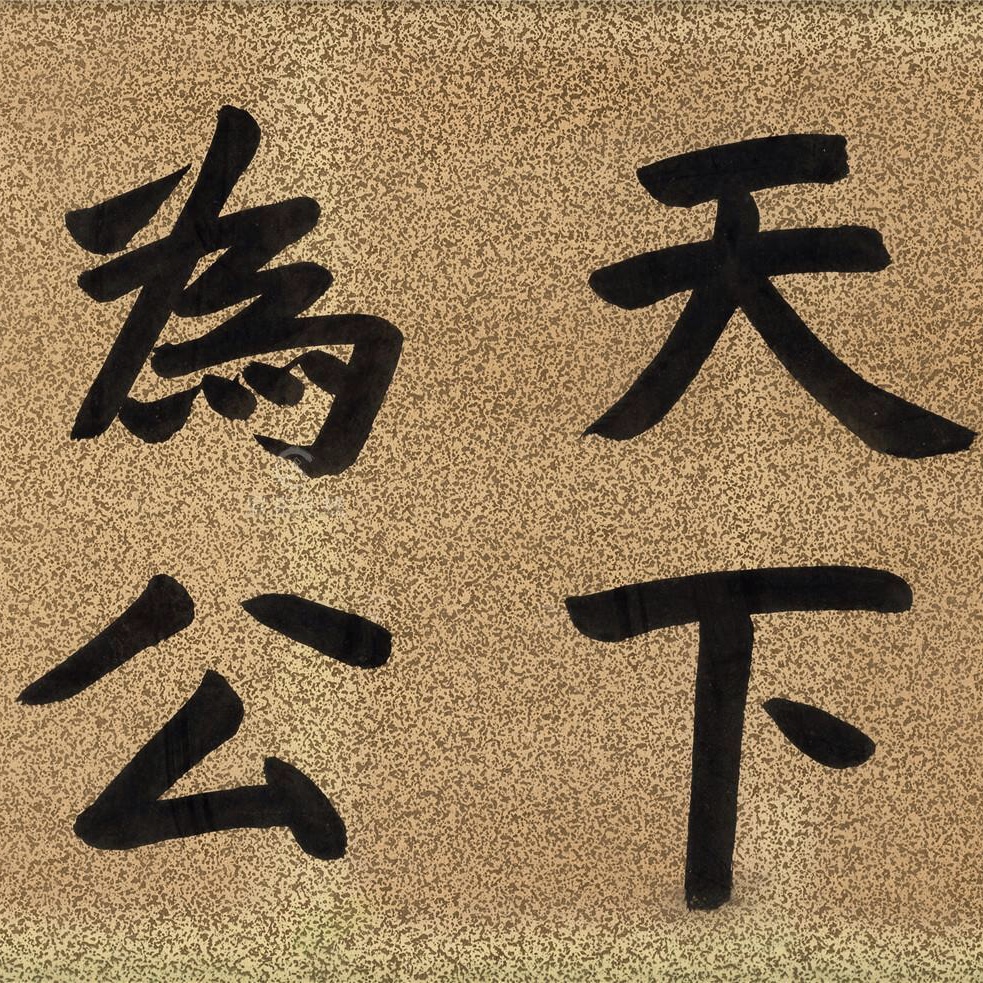 天下
為公